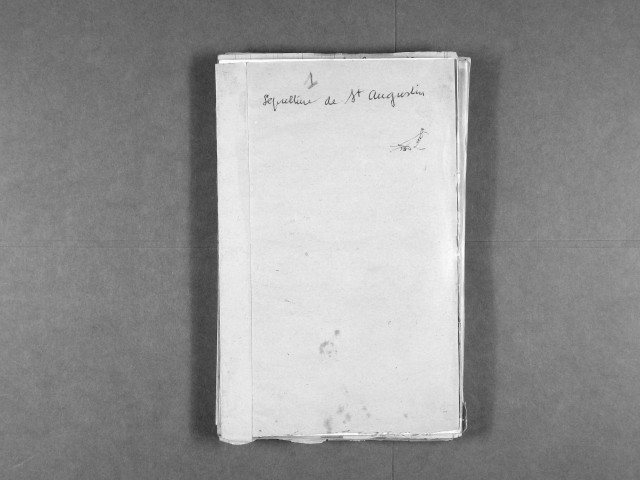 1
Sépulture de St Augustin